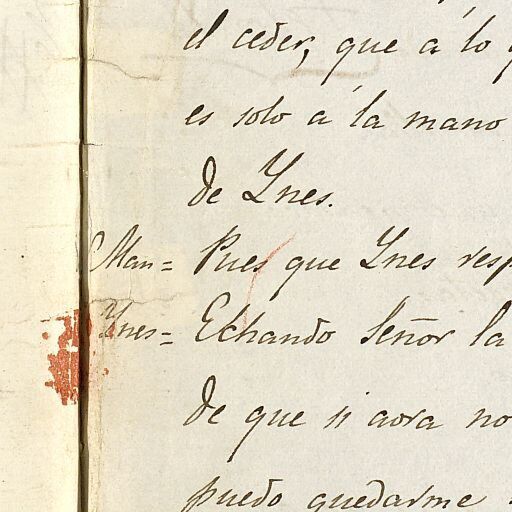 el ceder, que a lo
es solo á la mano
de Ynes.
Man= Pues que Ynes resp
Ynes= Echando Señor la
de que si aora no
puedo quedarme